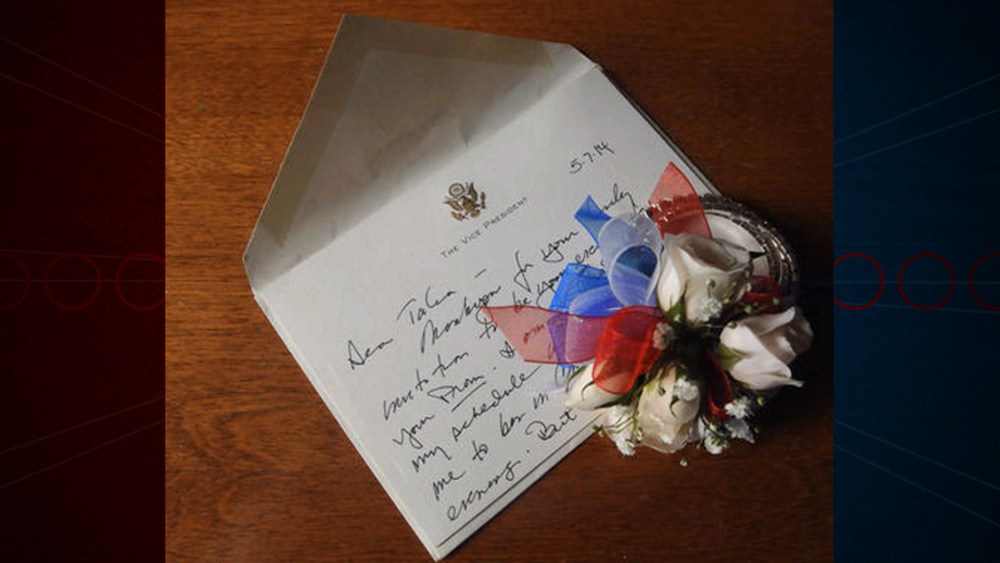 5.7.14
THE VICE PRESIDENT
Dear Talia –
Thank you for your
invitation to be your
your Prom. I am
my schedule
me to be in
evening. But